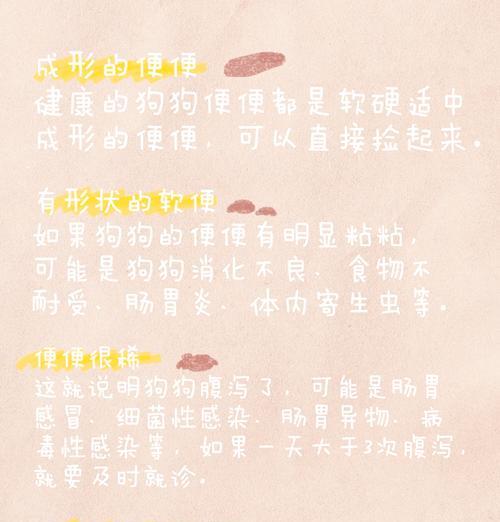 成形的便便
健康的狗狗便便都是软硬适中
成形的便便，可以直接捡起来。
有形状的软便
如果狗狗的便便有明显粘粘，
可能是狗狗消化不良、食物不
耐受、肠胃炎、体内寄生虫等。
便便很稀
这就说明狗狗腹泻了，可能是肠胃
感冒、细菌性感染、肠胃异物、病
毒性感染等，如果一天大于3次腹泻，
就要及时就诊。